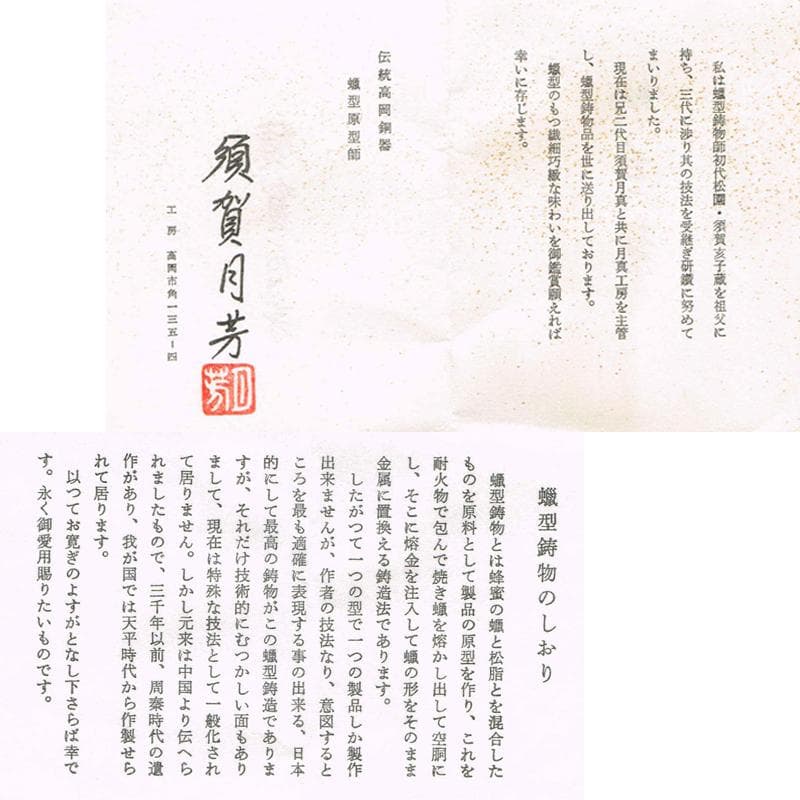 私は蠟型鋳物師初代松園・須賀亥子蔵を祖父に
持ち、三代に渉り其の技法を受継ぎ研鑽に努めて
まいりました。
現在は兄二代目須賀月真と共に月真工房を主管
し、蠟型鋳物品を世に送り出しております。
蠟型のもつ繊細巧緻な味わいを御鑑賞願えれば
幸いに存じます。
伝統高岡銅器
蠟型原型師
須賀月芳
月芳
工房 高岡市角一三五-四
蠟型鋳物のしおり
蠟型鋳物とは蜂蜜の蠟と松脂とを混合した
ものを原料として製品の原型を作り、これを
耐火物で包んで焼き蠟を熔かし出して空胴に
し、そこに熔金を注入して蠟の形をそのまま
金属に置換える鋳造法であります。
したがつて一つの型で一つの製品しか製作
出来ませんが、作者の技法なり、意図すると
ころを最も適確に表現する事の出来る、日本
的にして最高の鋳物がこの蠟型鋳造でありま
すが、それだけ技術的にむつかしい面もあり
まして、現在は特殊な技法として一般化され
て居りません。しかし元来は中国より伝へら
れましたもので、三千年以前、周秦時代の遺
作があり、我が国では天平時代から作製せら
れて居ります。
以つてお寛ぎのよすがとなし下さらば幸で
す。永く御愛用賜りたいものです。